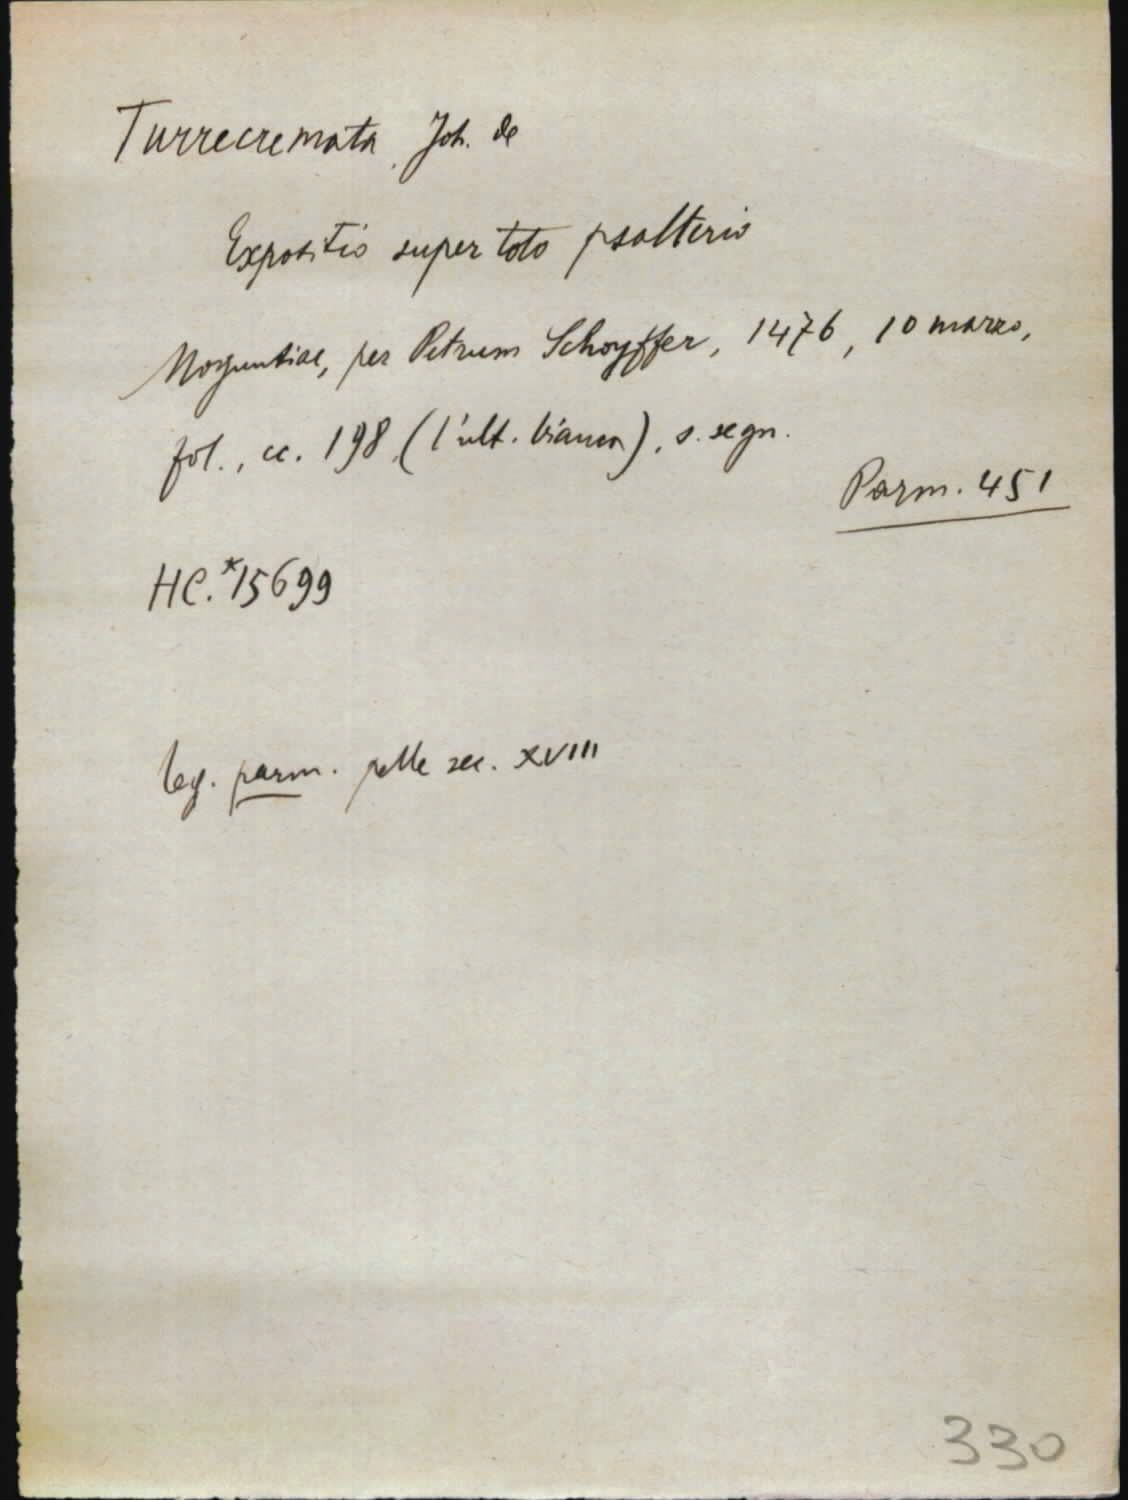 Turrecremata, Joh. de
Expositio super toto psalterio
Moguntiae, per Petrum Schoyffer, 1476, 10 marzo,
fol., cc. 198 (l'ult. bianca), s. segn.
Parm. 451
HC.*15699
leg. parm. pelle sec. XVIII
330